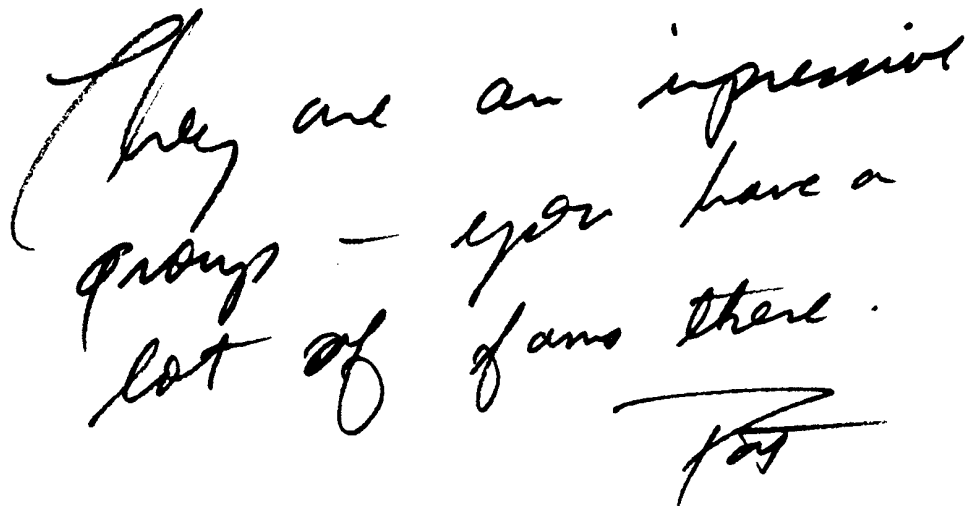 They are an impressive
group — you have a
lot of fans there.
Pat